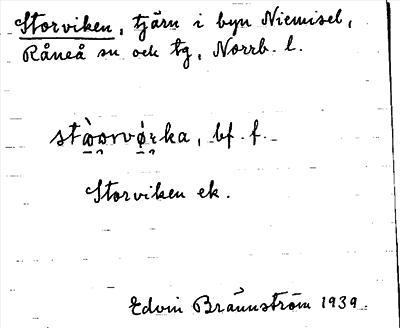 Storviken, tjärn i byn Niemisel,
Råneå sn och tg, Norrb. l.
bf. f.
Storviken ek.
Edvin Brännström 1939.